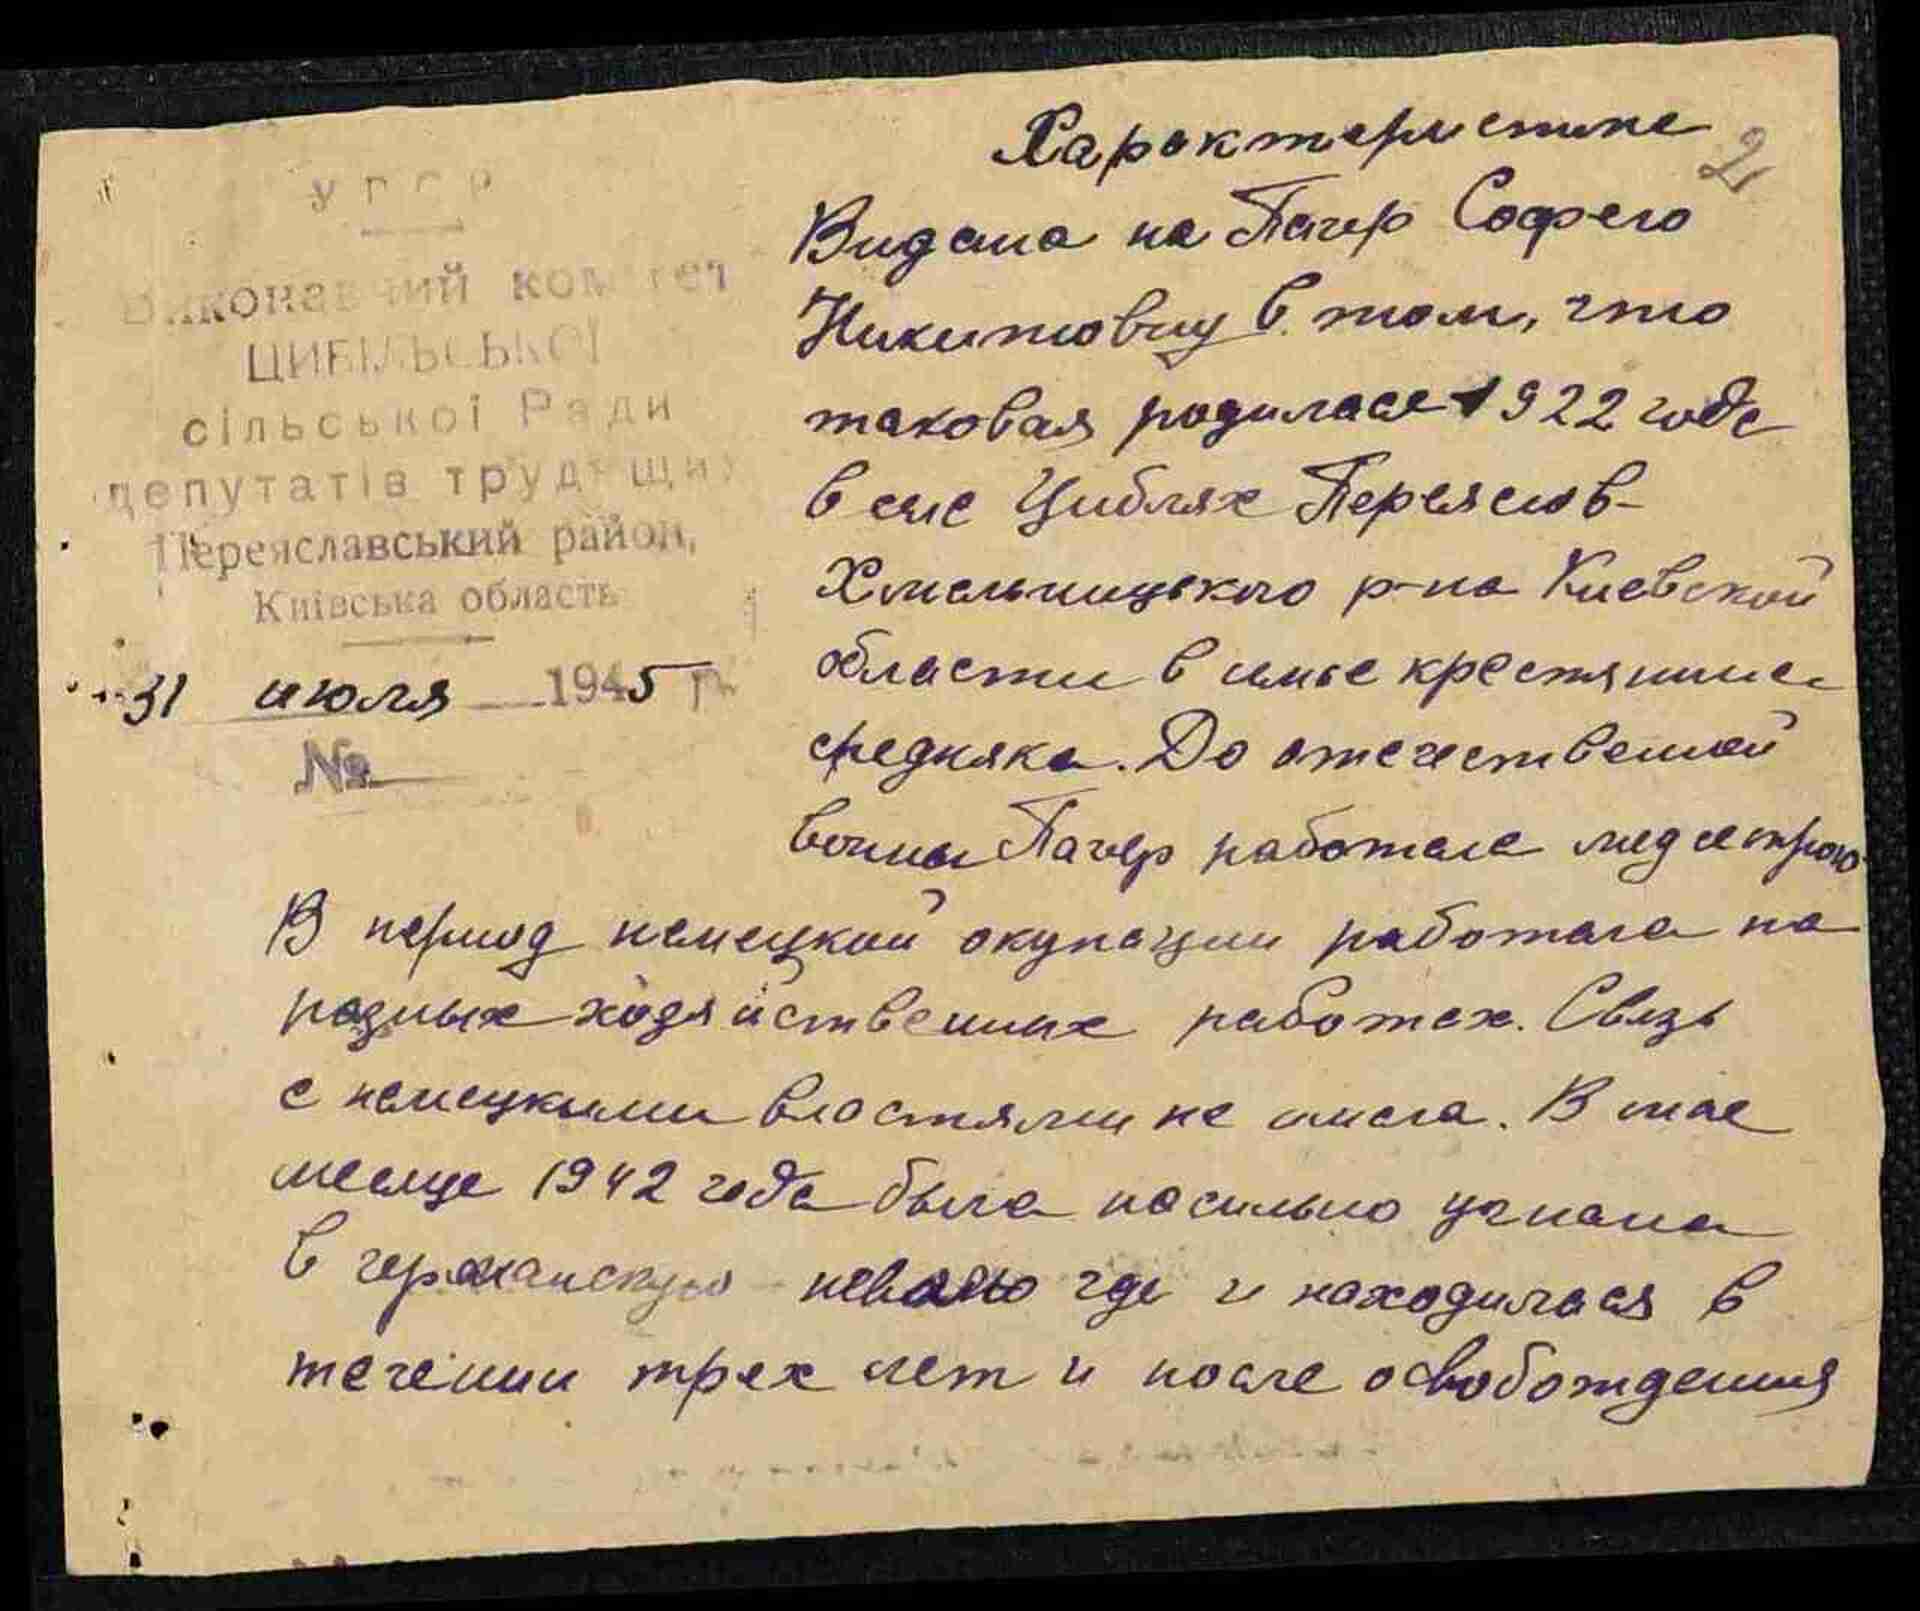 УРСР
Виконавчий комітет
ЦИБІЛЬСЬКОЇ
сільської Ради
депутатів трудящих
Переяславський район,
Київська область
31 июля 1945 р.
№
2
Характеристика
Видана на Пачер Софию
Никитовну в том, что
таковая родилась 1922 года
в селе Циблях Переяслов-
Хмельницького р-на Киевской
области в семье крестянина
средняка. До отечественной
войны Пачер работала медсестрою
В период немецкой окупации работала на
разных хозяйственых работах. Связь
с немецкими властями не имела. В мае
месяце 1942 года была насильно угнана
в германскую неволю где и находилася в
течении трех лет и после освобождения